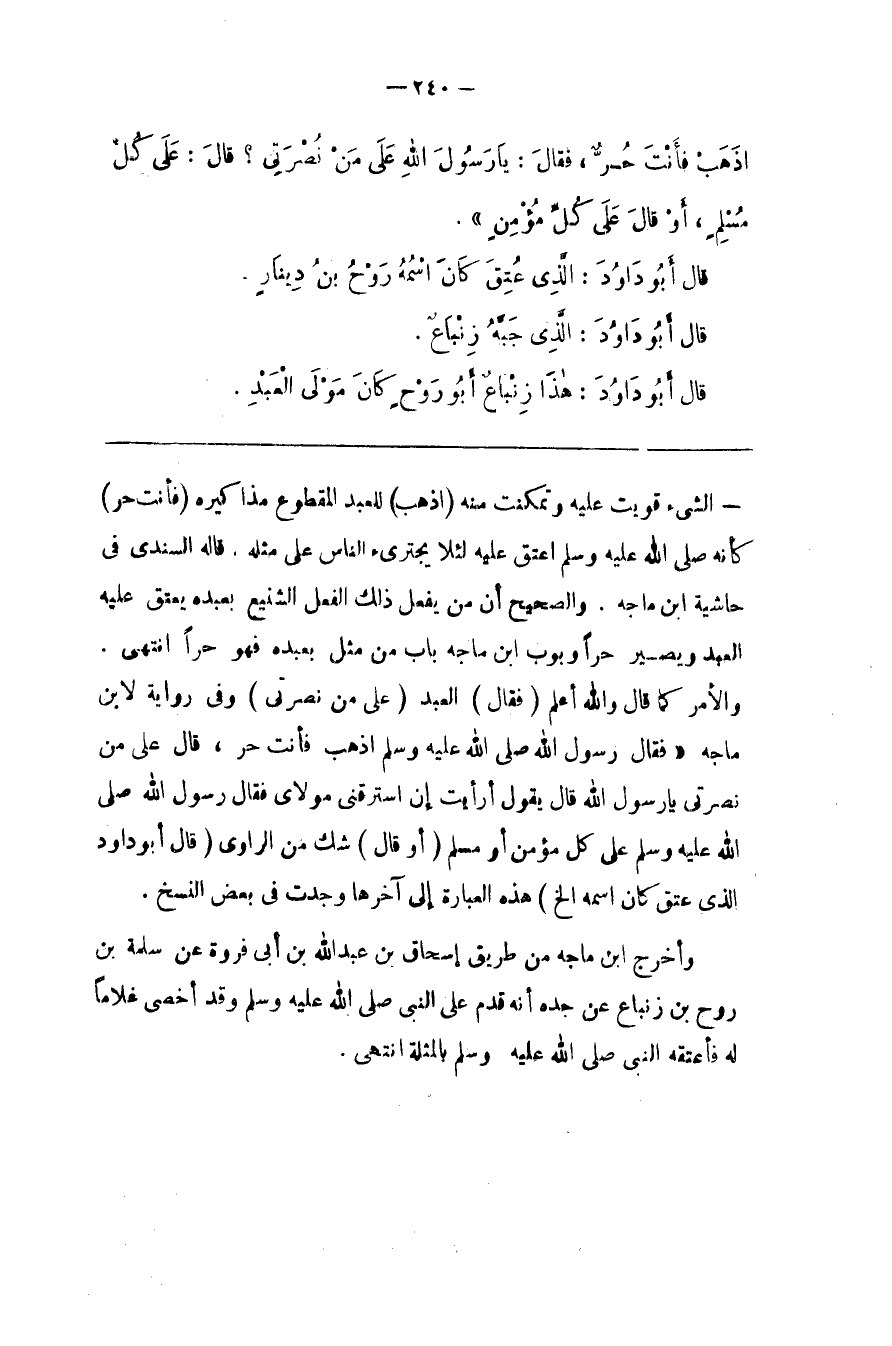 — ٢٤٠ —
اذْهَبْ فأَنْتَ حُــرٌّ ، فقالَ : يارَسُولَ اللهِ عَلَى مَنْ نُصْرَتِى ؟ قالَ : عَلَى كُلِّ
مُسْلِمٍ ، أوْ قالَ عَلَى كُلِّ مُؤْمِنٍ » .
قال أَبُو دَاوُدَ : الَّذِى عُتِقَ كَانَ اسْمُهُ رَوْحُ بنُ دِينَارٍ .
قال أَبُو دَاوُدَ : الَّذِى جَبَّهُ زِنْبَاعٌ .
قال أَبُو دَاوُدَ : هٰذَا زِنْبَاعٌ أَبُو رَوْحٍ كَانَ مَوْلَى الْعَبْدِ .
— الشىء قويت عليه وتمكنت منه (اذهب) للعبد المقطوع مذاكيره (فأنت حر)
كأنه صلى الله عليه وسلم اعتق عليه لئلا يجترىء الناس على مثله . قاله السندى فى
حاشية ابن ماجه . والصحيح أن من يفعل ذلك الفعل الشنيع بعبده يعتق عليه
العبد ويصــير حراً وبوب ابن ماجه باب من مثل بعبده فهو حراً انتهى .
والأمر كما قال والله أعلم ( فقال ) العبد ( على من نصرتى ) وفى رواية لابن
ماجه « فقال رسول الله صلى الله عليه وسلم اذهب فأنت حر ، قال على من
نصرتى يارسول الله قال يقول أرأيت إن استرقنى مولاى فقال رسول الله صلى
الله عليه وسلم على كل مؤمن أو مسلم ( أو قال ) شك من الراوى ( قال أبو داود
الذى عتق كان اسمه الخ ) هذه العبارة إلى آخرها وجدت فى بعض النسخ .
وأخرج ابن ماجه من طريق إسحاق بن عبدالله بن أبى فروة عن سلمة بن
روح بن زنباع عن جده أنه قدم على النبى صلى الله عليه وسلم وقد أخصى غلاماً
له فأعتقه النبى صلى الله عليه وسلم بالمثلة انتهى .